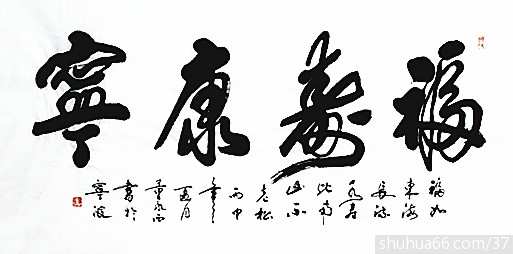 福壽康寧
福如
東海
長流
水壽
比南
山不
老松
丙申
年
月
書於
寧波
shuhua66.com/37